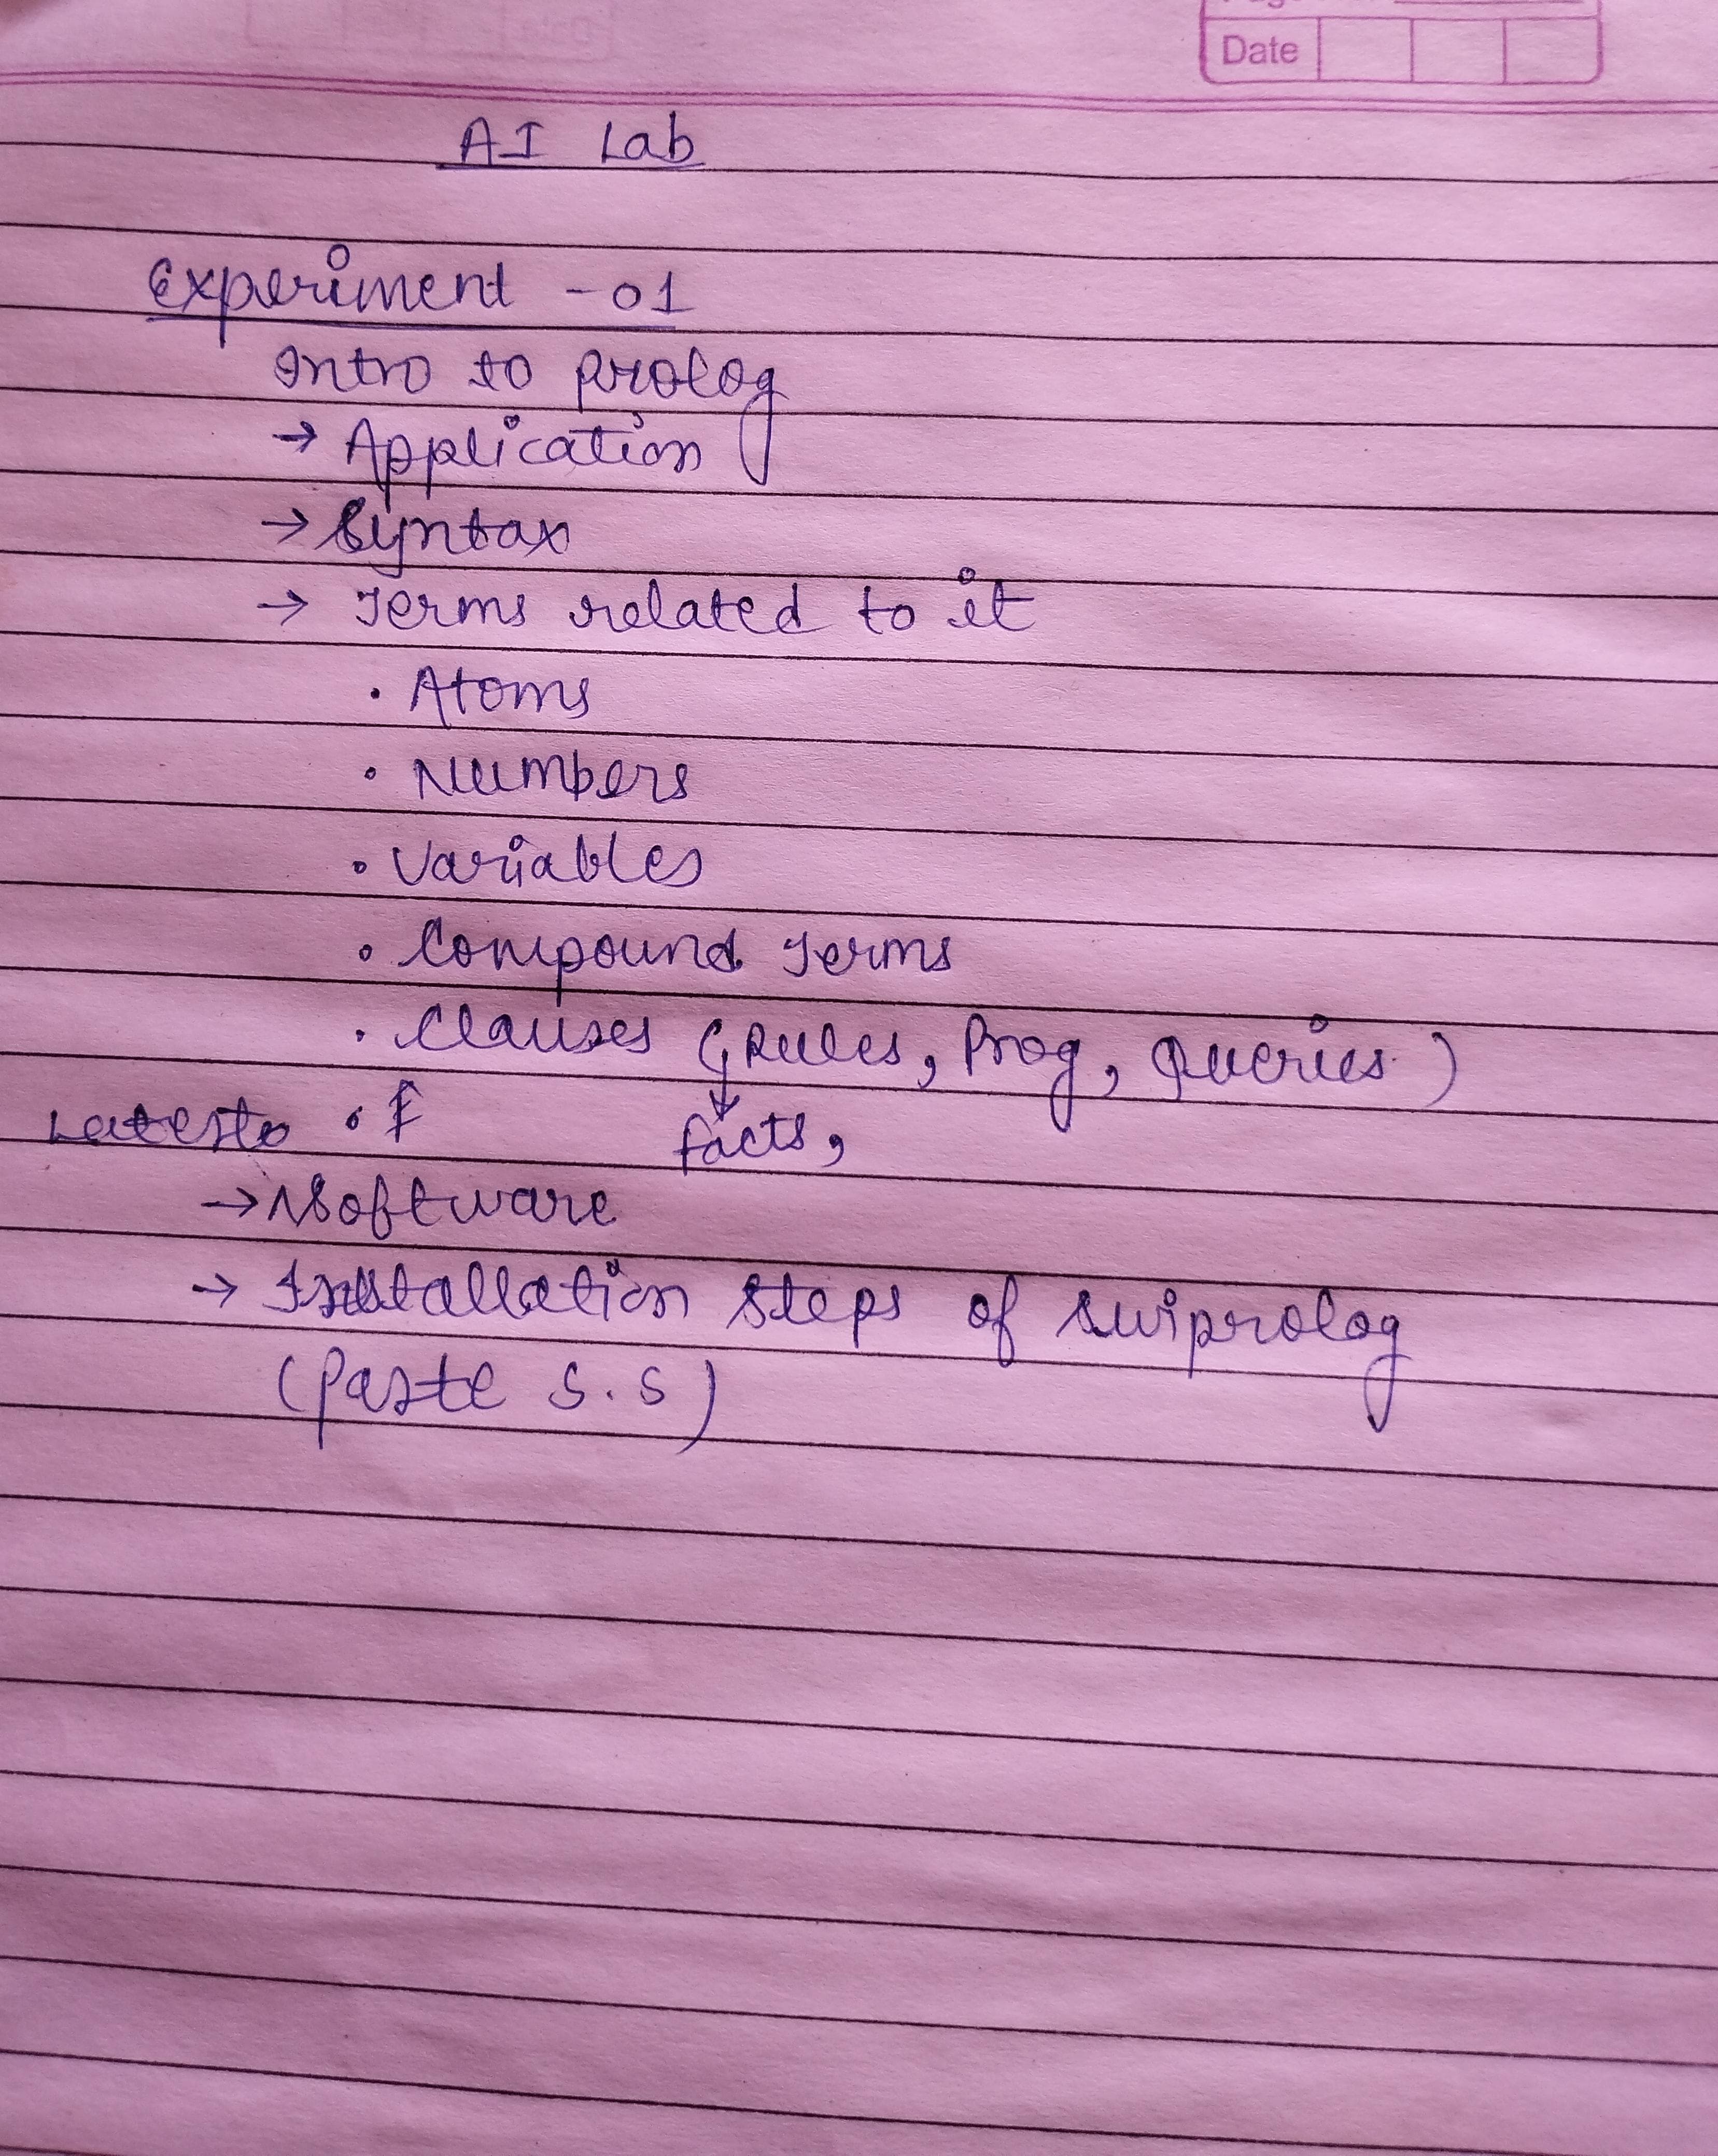 Date
AI Lab
Experiment - 01
Intro to prolog
→ Application
→ Syntax
→ Terms related to it
• Atoms
• Numbers
• Variables
• Compound Terms
• Clauses (Rules, Prog, Queries)
facts,
→ Software
→ Installation steps of swiprolog
(Paste S.S)